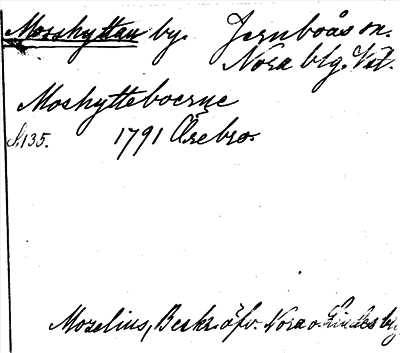 Mosshyttan by. Jernboås sn.
Nora blg. Vstl.
Moshytteboerne
S. 135. 1791 Örebro.
Moselius, Beskr. öfv. Nora o. Lindes blg